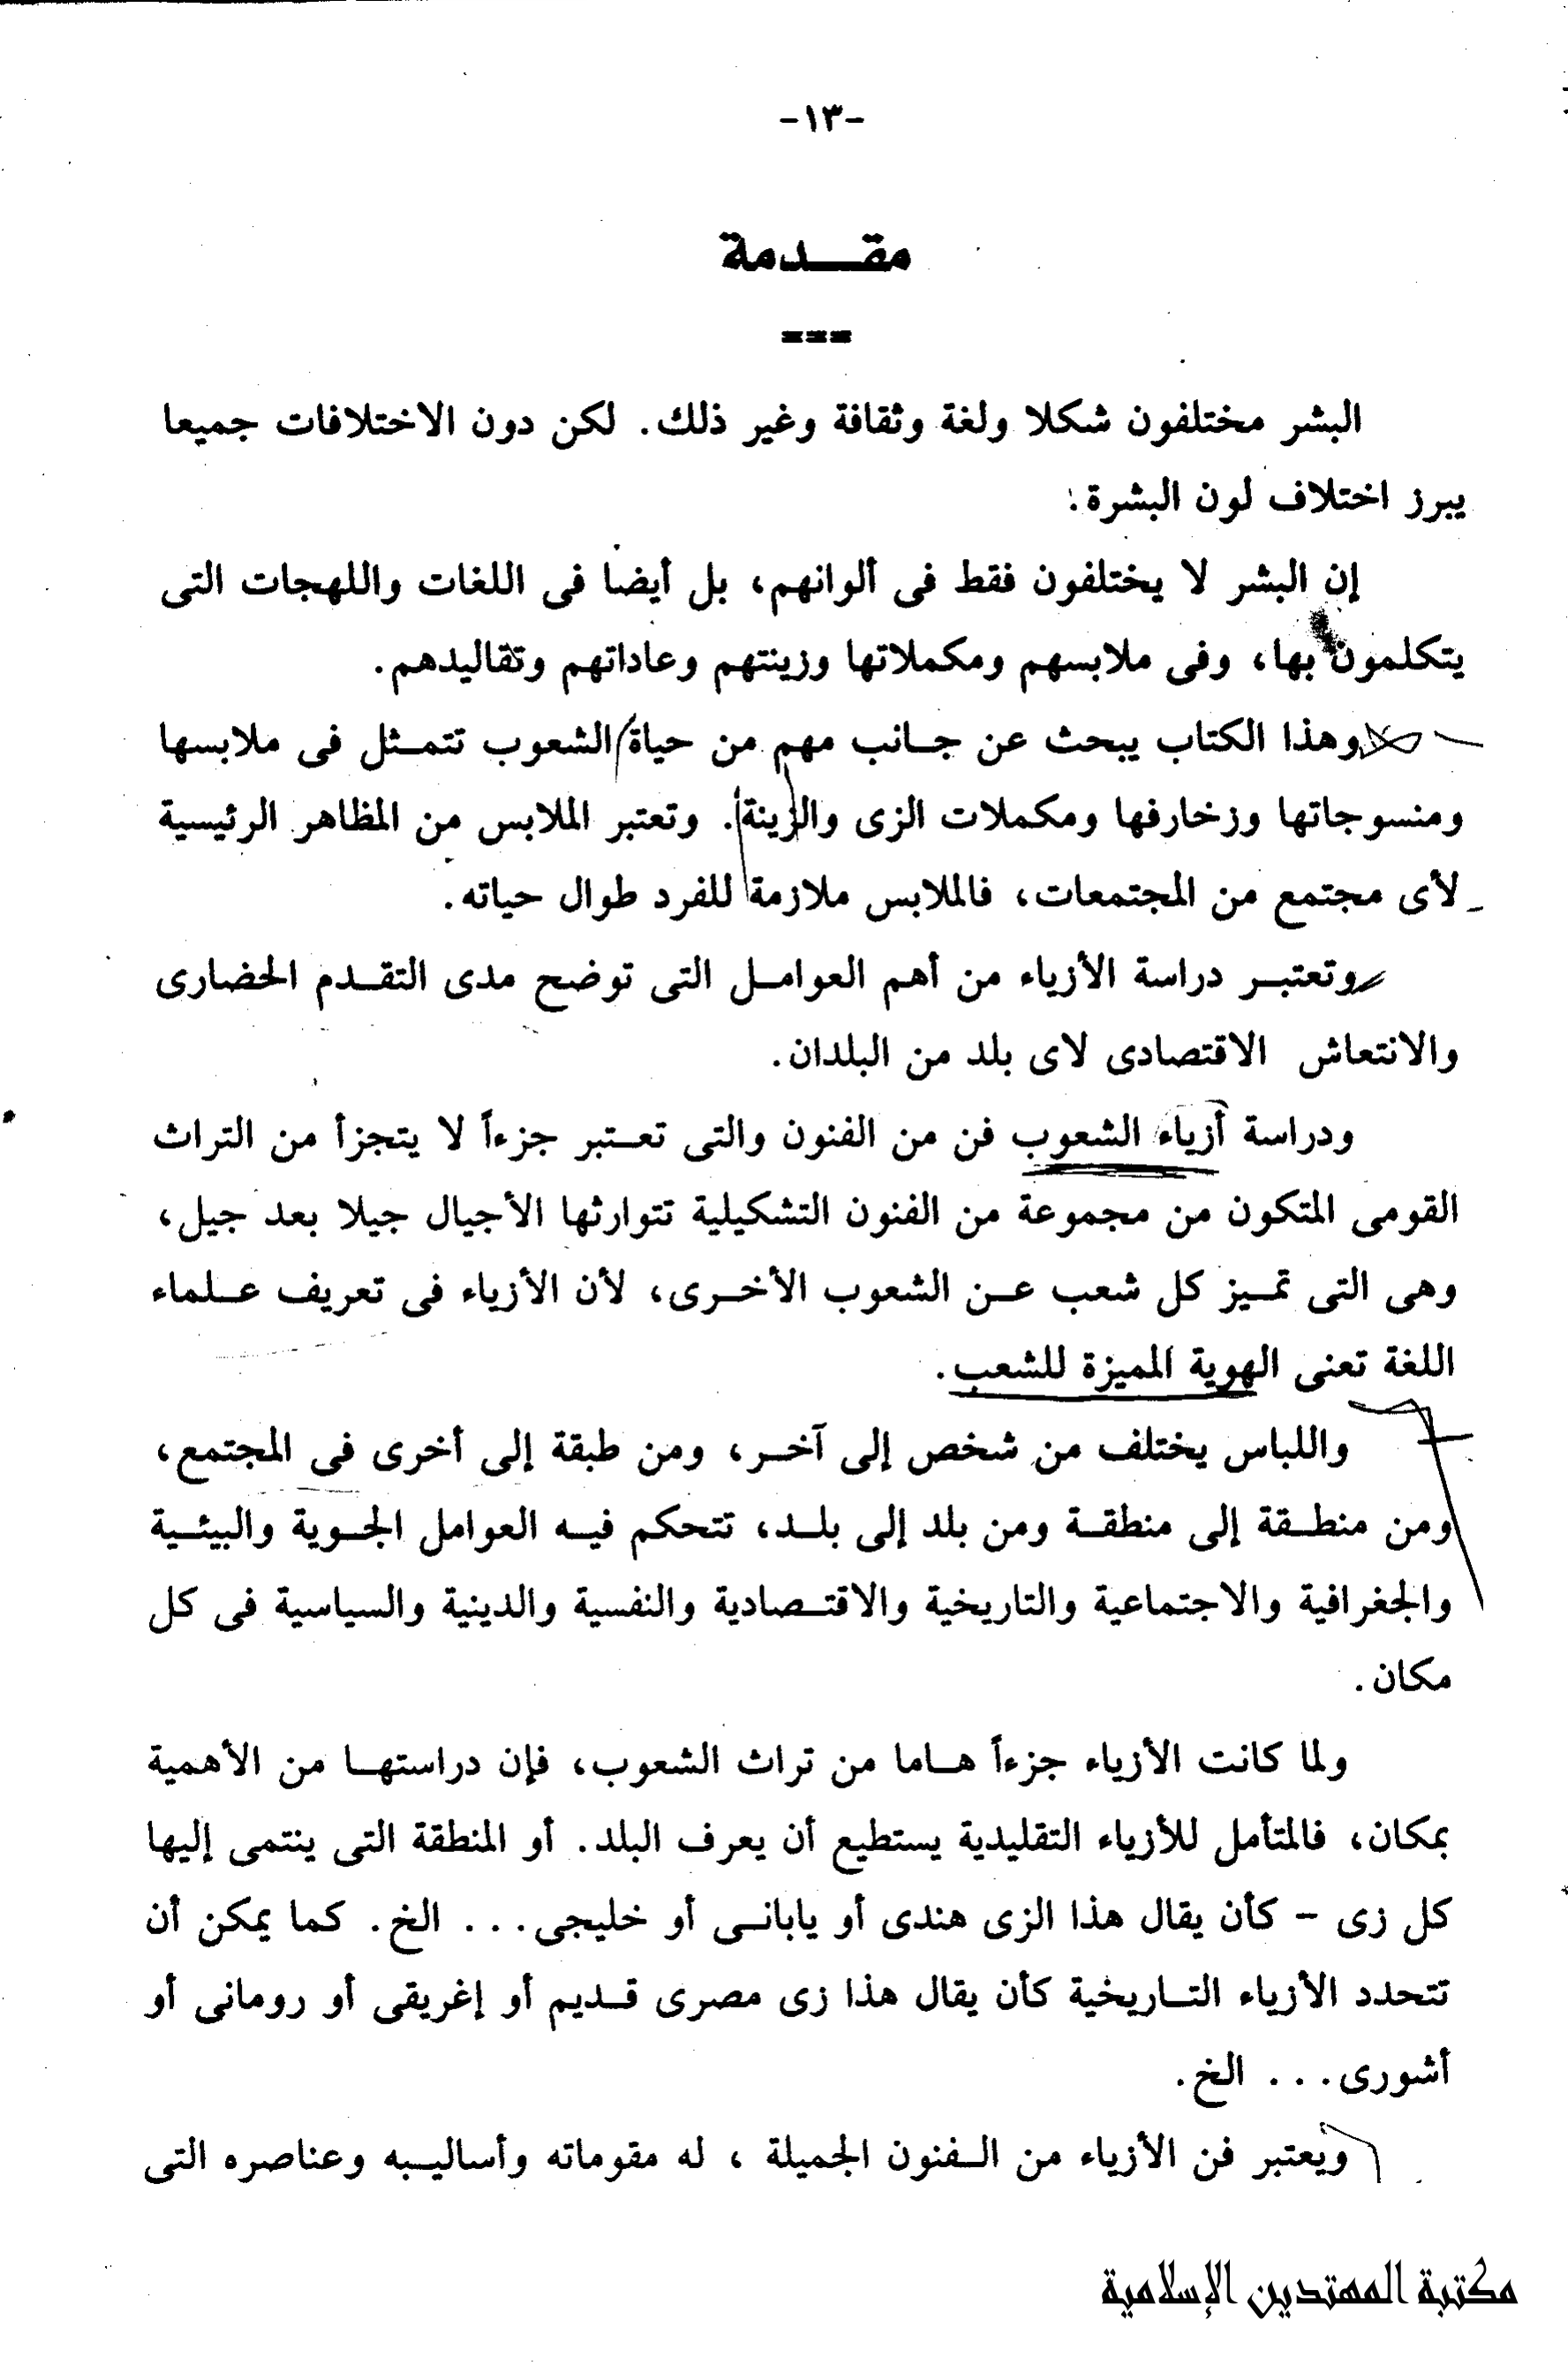 -١٣-
مقدمة
===
البشر مختلفون شكلا ولغة وثقافة وغير ذلك. لكن دون الاختلافات جميعا
يبرز اختلاف لون البشرة:
إن البشر لا يختلفون فقط فى ألوانهم، بل أيضا فى اللغات واللهجات التى
يتكلمون بها، وفى ملابسهم ومكملاتها وزينتهم وعاداتهم وتقاليدهم.
وهذا الكتاب يبحث عن جانب مهم من حياة الشعوب تتمثل فى ملابسها
ومنسوجاتها وزخارفها ومكملات الزى والزينة. وتعتبر الملابس من المظاهر الرئيسية
لأى مجتمع من المجتمعات، فالملابس ملازمة للفرد طوال حياته.
وتعتبر دراسة الأزياء من أهم العوامل التى توضح مدى التقدم الحضارى
والانتعاش الاقتصادى لاى بلد من البلدان.
ودراسة أزياء الشعوب فن من الفنون والتى تعتبر جزءاً لا يتجزأ من التراث
القومى المتكون من مجموعة من الفنون التشكيلية تتوارثها الأجيال جيلا بعد جيل،
وهى التى تميز كل شعب عن الشعوب الأخرى، لأن الأزياء فى تعريف علماء
اللغة تعنى الهوية المميزة للشعب.
واللباس يختلف من شخص إلى آخر، ومن طبقة إلى أخرى فى المجتمع،
ومن منطقة إلى منطقة ومن بلد إلى بلد، تتحكم فيه العوامل الجوية والبيئية
والجغرافية والاجتماعية والتاريخية والاقتصادية والنفسية والدينية والسياسية فى كل
مكان.
ولما كانت الأزياء جزءاً هاما من تراث الشعوب، فإن دراستها من الأهمية
بمكان، فالمتأمل للأزياء التقليدية يستطيع أن يعرف البلد. أو المنطقة التى ينتمى إليها
كل زى - كأن يقال هذا الزى هندى أو يابانى أو خليجى... الخ. كما يمكن أن
تتحدد الأزياء التاريخية كأن يقال هذا زى مصرى قديم أو إغريقى أو رومانى أو
أشورى... الخ.
ويعتبر فن الأزياء من الفنون الجميلة ، له مقوماته وأساليبه وعناصره التى
مكتبة المهتدين الإسلامية